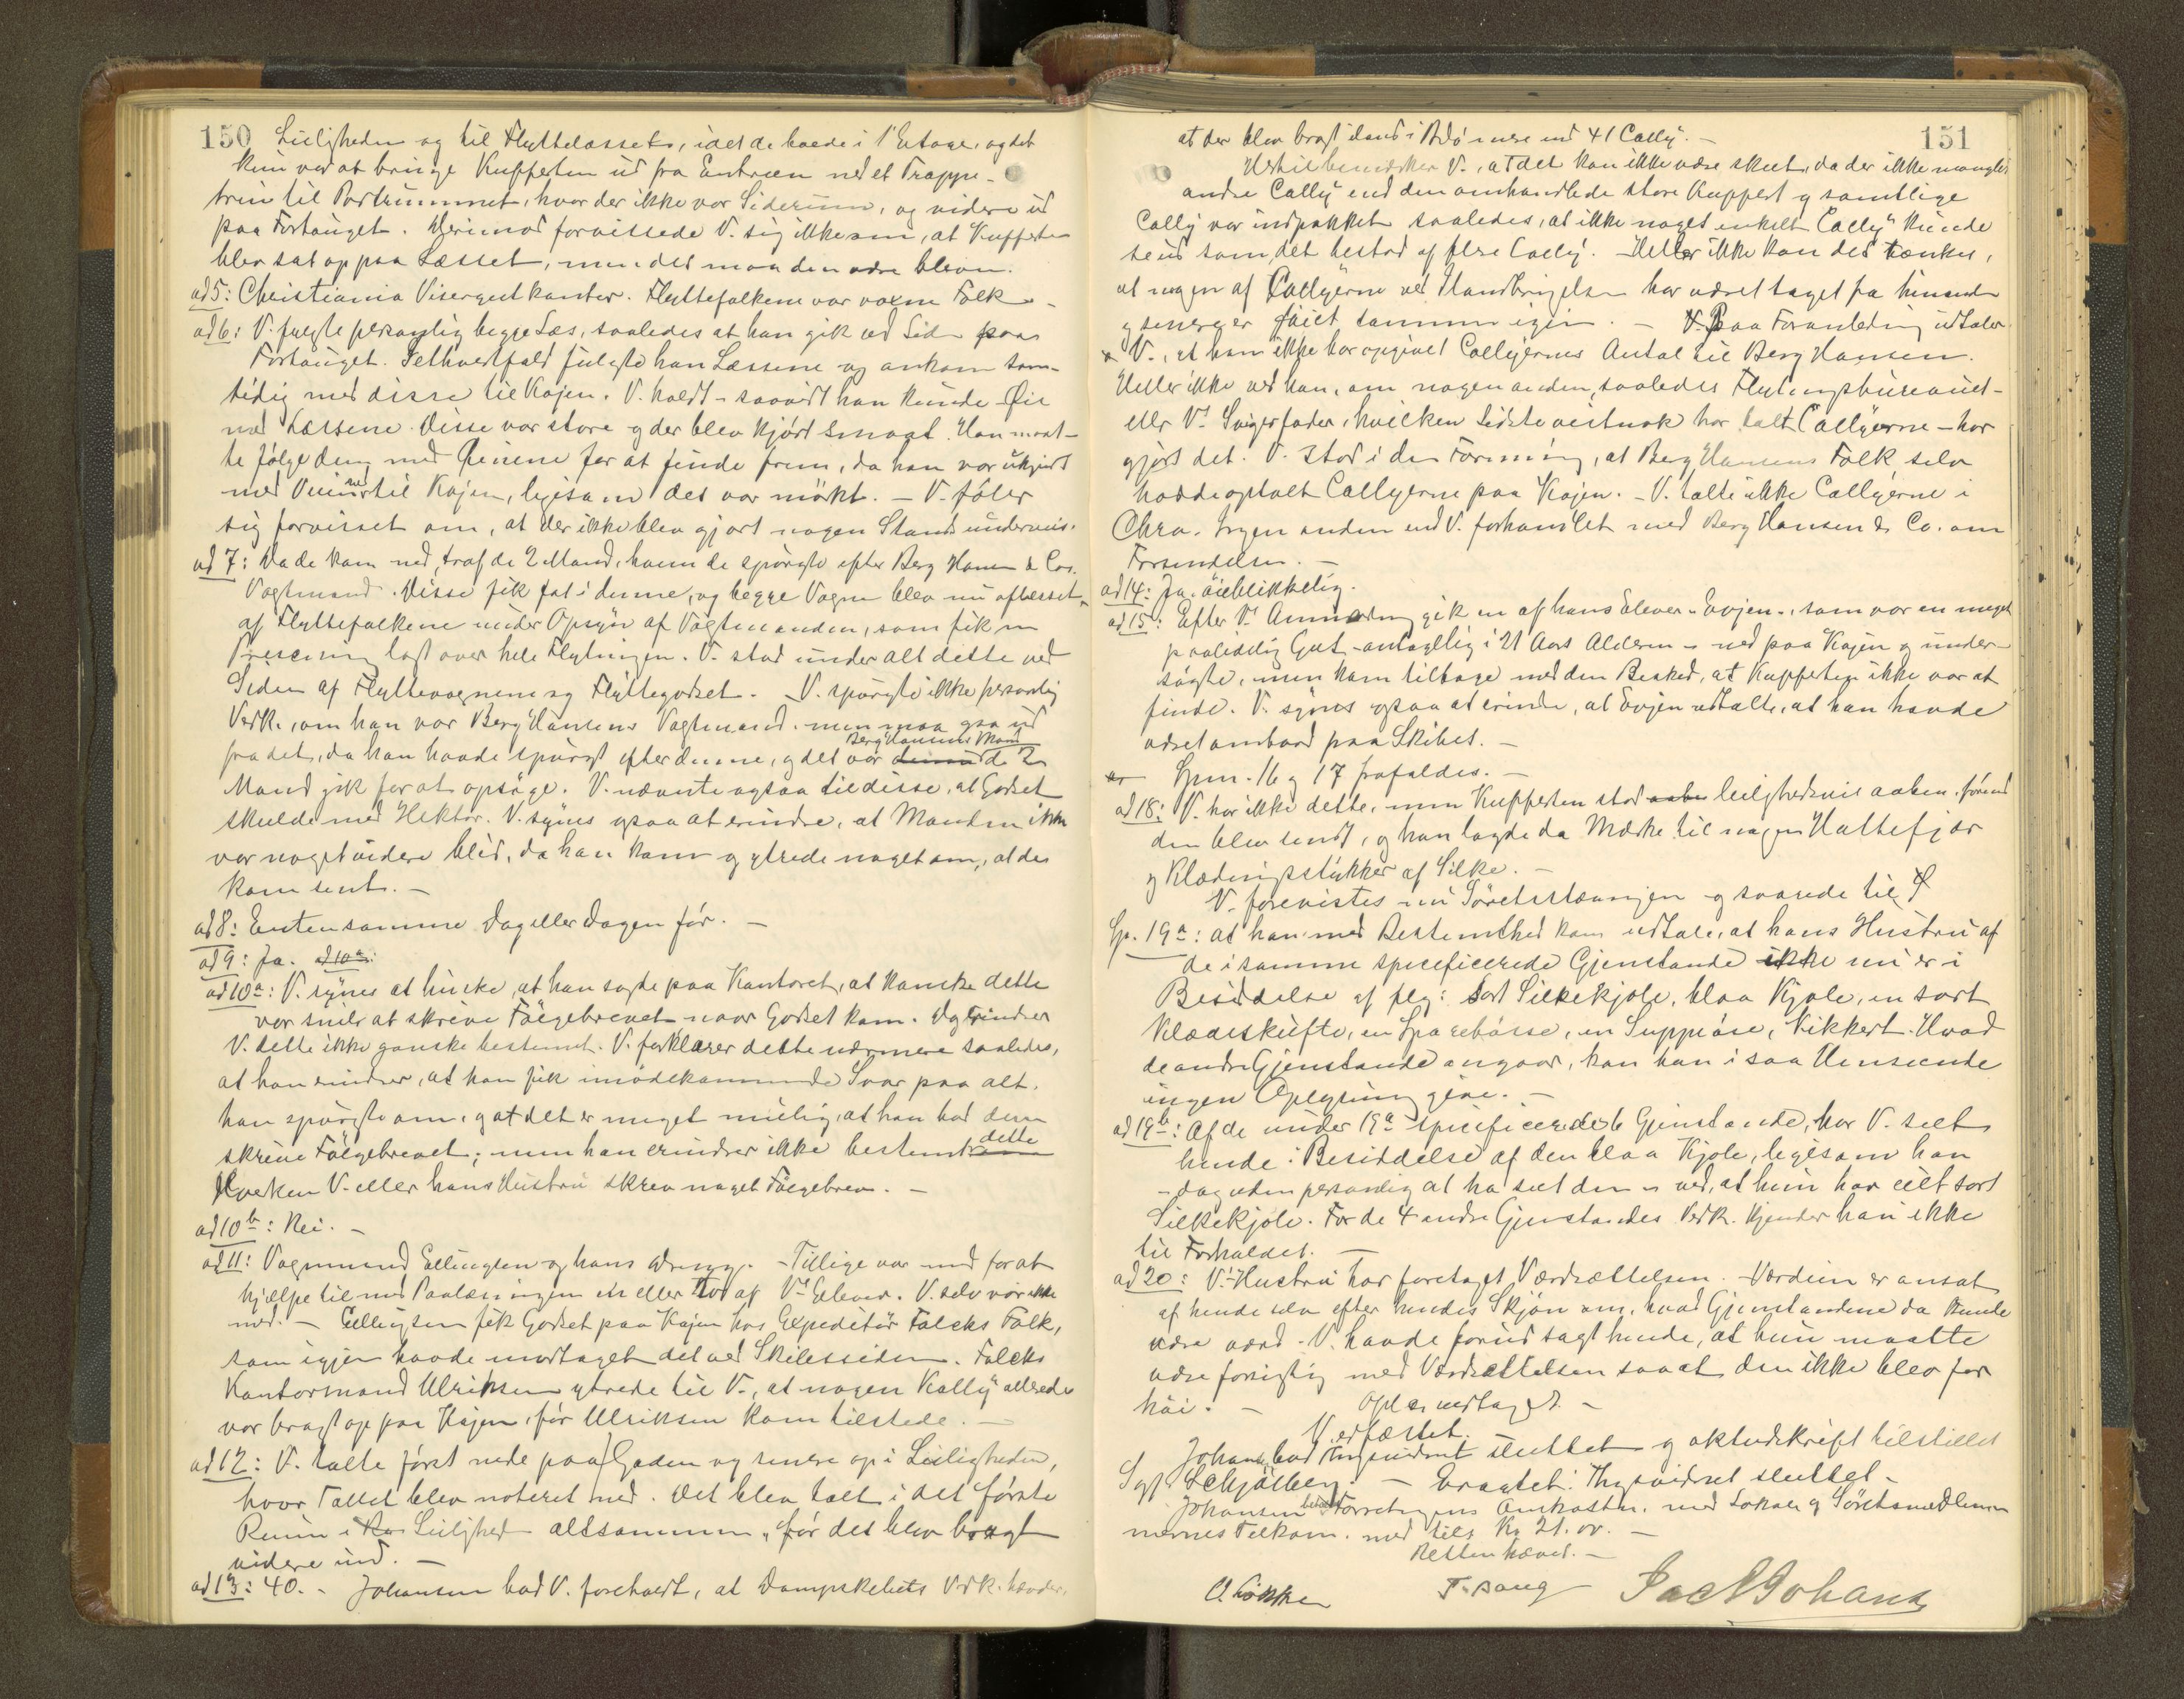 150
Leiligheden og til Flyttelasset, idet de boede i 1 Etage, og det
kun ved at bringe Kufferten ud fra Entreen ned et Trappe-
trin til Portrummet, hvor der ikke var Siderum, og videre ud
paa Fortauget. Derimod forvissede V. sig ikke om, at Kufferten
blev sat op paa Læsset, men det maa den være bleven.
ad 5: Christiania Visergutkontor. Flyttefolkene var voxne Folk -
ad 6: V. fulgte personlig begge Læs, saaledes at han gik ved Siden paa
Fortauget. Ialhvertfald fulgte han Læssene og ankom sam-
tidig med disse til Kajen. V. holdt - saavidt han kunde - Øie
med Læssene. Disse var store og der blev kjørt smaat. Han maat-
te følge dem med Øinene for at finde frem, da han var ukjendt
med Veien ned til Kajen, ligesom det var mørkt. - V. føler
sig forvisset om, at der ikke blev gjort nogen Stands underveis.
ad 7: Da de kom ned, traf de 2 Mand, hvem de spurgte efter Berg Hansen & Cos.
Vagtmand. Disse fik fat i denne, og begge Vogne blev nu aflesset
af Flyttefolkene under Opsyn af Vagtmanden, som fik en
Presenning lagt over hele Flytningen. V. stod under alt dette ved
Siden af Flyttevognene og Flyttegodset. - V. spurgte ikke personlig
Vedk. om han var Berg Hansens Vagtmand, men maa gaa ud
fra det, da han havde spurgt efter denne, og det var Berg Hansens Mand de 2
Mand gik for at opsøge. V. nævnte ogsaa til disse, at Godset
skulde med Hektor. V. synes ogsaa at erindre, at Manden ikke
var noget videre blid, da han kom og ytrede noget om, at de
kom sent. -
ad 8: Enten samme Dag eller Dagen før. -
ad 9: Ja. ad 10a:
ad 10a: V. synes at huske, at han sagde paa Kontoret, at kanske dette
var snil at skrive Følgebrevet naar Godset kom. Dog erindrer
V. dette ikke ganske bestemt. V. forklarer dette nærmere saaledes,
at han erindrer, at han fik imødekommende Svar paa alt,
han spurgte om, og at det er meget mulig, at han bad dem
skrive Følgebrevet; men han erindrer ikke bestemt dette
Hverken V. eller hans Hustru skrev noget Følgebrev. -
ad 10b: Nei. -
ad 11: Vognmand Ellingsen og hans Dreng. - Tillige var med for at
hjælpe til med Paalæsningen en eller to af Vs Elever. V. selv var ikke
med. - Ellingsen fik Godset paa Kajen hos Expeditør Falcks Folk,
som igjen havde modtaget det ved Skibssiden. Falcks
Kontormand Ulriksen ytrede til V., at nogen Kolly allerede
var bragt op paa Kajen, før Ulriksen kom tilstede. -
ad 12: V. talte først nede paa Gaden og senere op i Leiligheden,
hvor Tallet blev noteret ned. Det blev talt i det første
Rum i Leilighed altsammen, før det blev bragt
videre ind. -
ad 13: 40. - Johansen bad V. foreholdt, at Dampskibets Vedk. hævder,
151
at der blev bragt iland i Bodø mere end 41 Colly. -
Hertil bemærker V., at det kan ikke være skeet, da der ikke mangler
andre Colly end den omhandlede store Kuffert og samtlige
Colly var indpakket saaledes, at ikke noget enkelt Colly kunde
se ud som, det bestod af flere Colly. - Heller ikke kan det tænkes,
at nogen af Collyerne ved Ilandbringelsen har været taget fra hinanden
og senere er føiet sammen igjen. - Paa Foranledning udtaler
V., at han ikke har opgivet Collyernes Antal til Berg Hansen.
Heller ikke ved han, om nogen anden, saaledes Flytningsbureauet -
eller Vs Svigerfader, hvilken sidste vistnok har talt Collyerne - har
gjort det. V. stod i den Formening, at Berg Hansens Folk selv
havde optalt Collyerne paa Kajen. - V. talte ikke Collyerne i
Chra. Ingen anden end V. forhandlet med Berg Hansen & Co. om
Forsendelsen. -
ad 14: Ja. øieblikkelig.
ad 15: Efter Vs Anmodning gik en af hans Elever - Evjen -, som var en meget
paalidelig Gut - antagelig i 21 Aars Alderen - ned paa Kajen og under-
søgte, men kom tilbage med den Besked, at Kufferten ikke var at
finde. V. synes ogsaa at erindre, at Evjen udtalte, at han havde
været ombord paa Skibet. -
Spm. 16 og 17 frafaldes. -
ad 18: V. har ikke dette, men Kufferten stod leilighedsvis aaben, førend
den blev sendt, og han lagde da Mærke til nogen Hattefjær
og Klædningsstykker af Silke. -
V. forevistes nu Søretsstævningen og svarede til
Sp. 19a: at han med Bestemthed kan udtale, at hans Hustru af
de i samme specificerede Gjenstande ikke nu er i
Besiddelse af flg: sort Silkekjole, blaa Kjole, en sort
Klædeskufte, en Sparebøsse, en Suppeøse, Kikkert. Hvad
de andre Gjenstande angaar, kan han i saa Henseende
ingen Oplysning give. -
ad 19b: Af de under 19a specificerede 6 Gjenstande, har V. seet
hende i Besiddelse af den blaa Kjole, ligesom han
- dog uden personlig at ha seet den - ved, at hun har eiet sort
Silkekjole. For de 4 andre Gjenstandes Vedk. kjender han ikke
til Forholdet. -
ad 20: Vs Hustru har foretaget Værdsættelsen. Værdien er ansat
af hende selv efter hendes Skjøn om, hvad Gjenstandene da kunde
være værd. V. havde forud sagt hende, at hun maatte
være forsigtig med Værdsættelsen saa at den ikke blev for
høi. - Opl. & vedtaget. -
V. edfæstet.
Johansen bad Thingsvidnet sluttet og aktudskrift tilstillet
Sgf. Schjølberg. - Eragtet: Thingsvidnet sluttet -
Johansen betalte Forretningens Omkostn. med Lokale og Søretsmedlem-
mernes Tilkom. med tils. Kr. 21.00. -
Retten hævet. -
O. Løkke
T. Bang
Jac N Johans